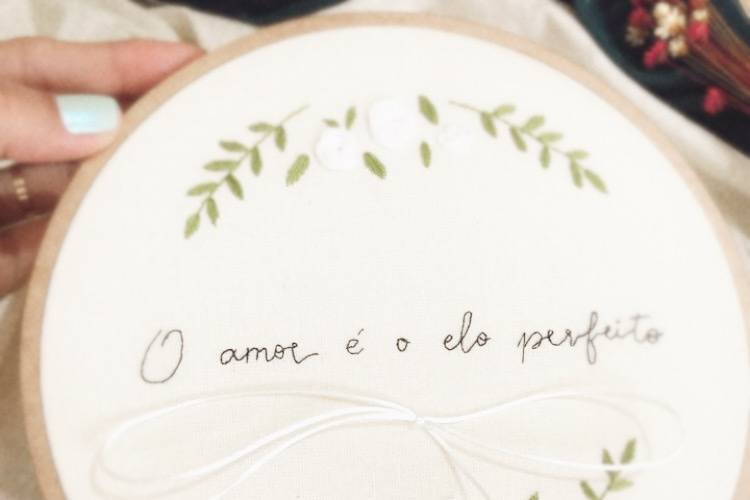 O amor é o elo perfeito